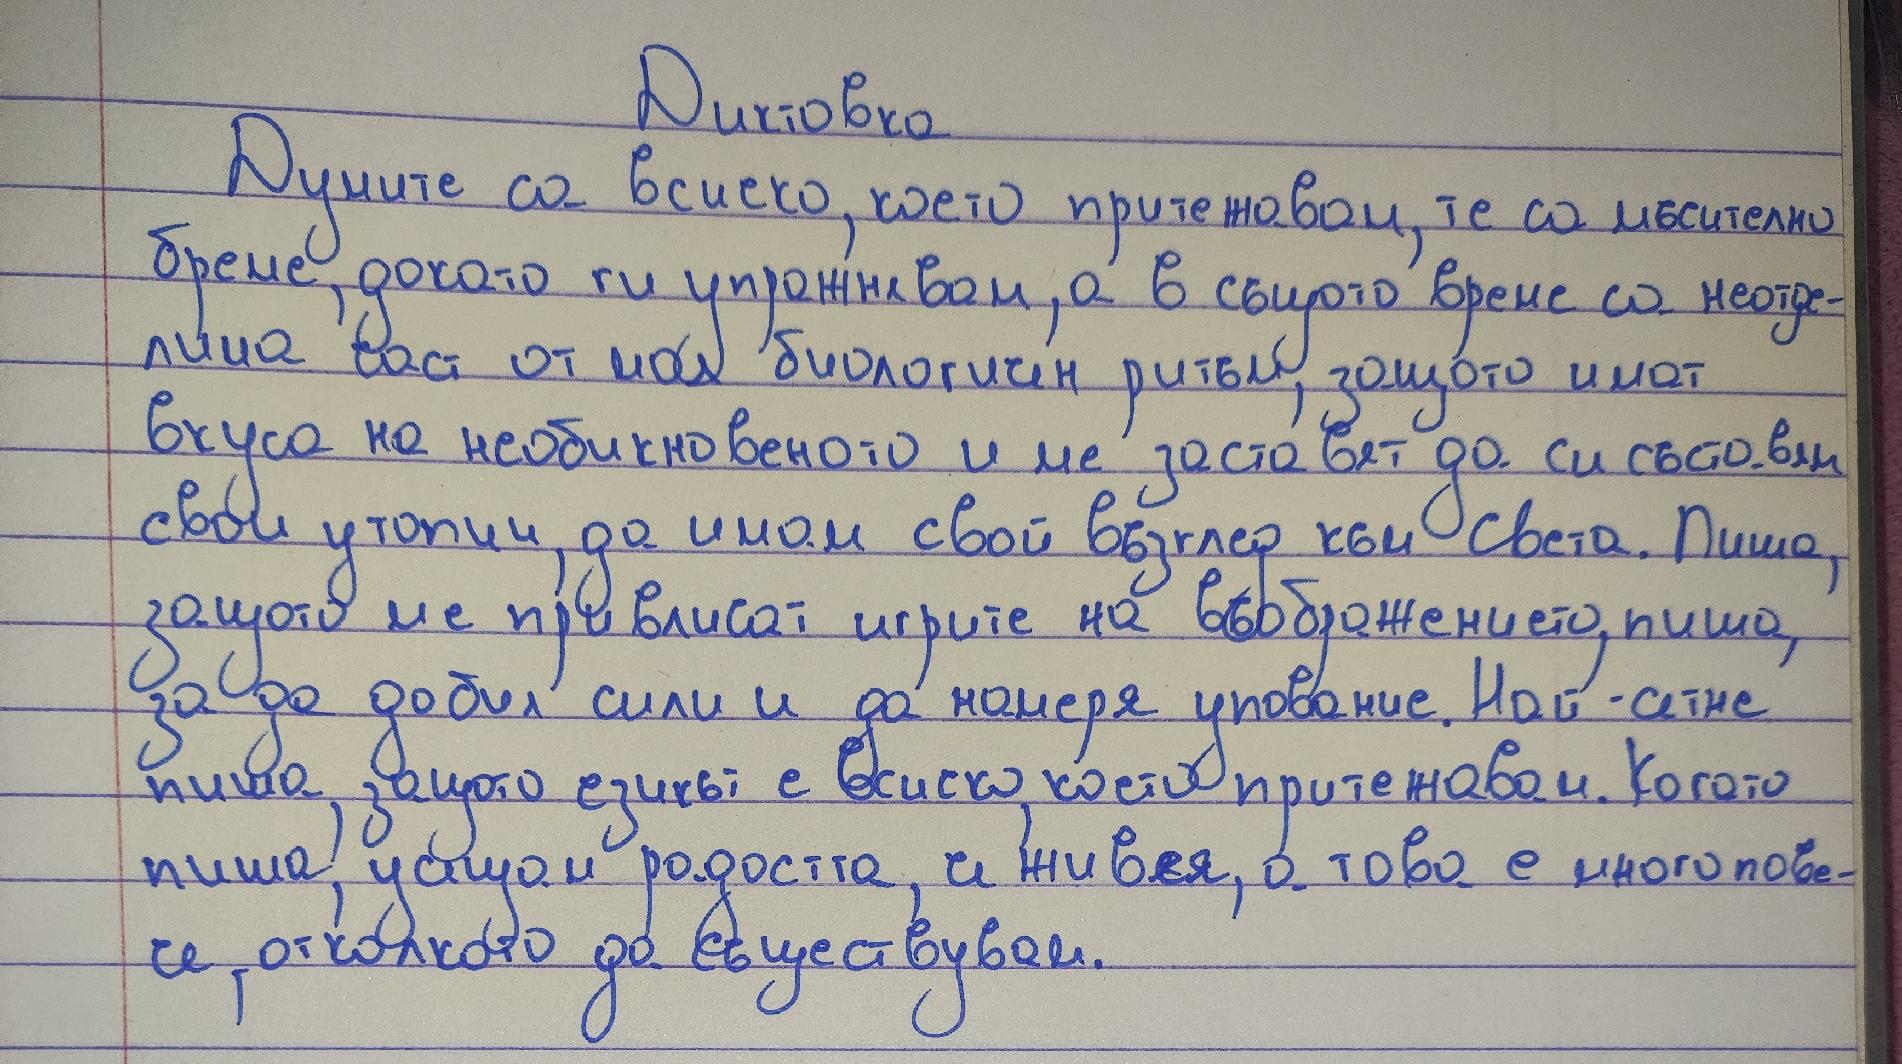 Диктовка
Думите са всичко, което притежавам, те са мъчително
бреме, докато ги упражнявам, а в същото време са неотде-
лима част от моя биологичен ритъм, защото имат
вкуса на необикновеното и ме заставят да си съставям
свои утопии, да имам свой възглед към света. Пиша,
защото ме привличат игрите на въображението, пиша,
за да добия сили и да намеря упование. Най-сетне
пиша, защото езикът е всичко, което притежавам. Когато
пиша, усещам радостта, че живея, а това е много пове-
че, отколкото да съществувам.